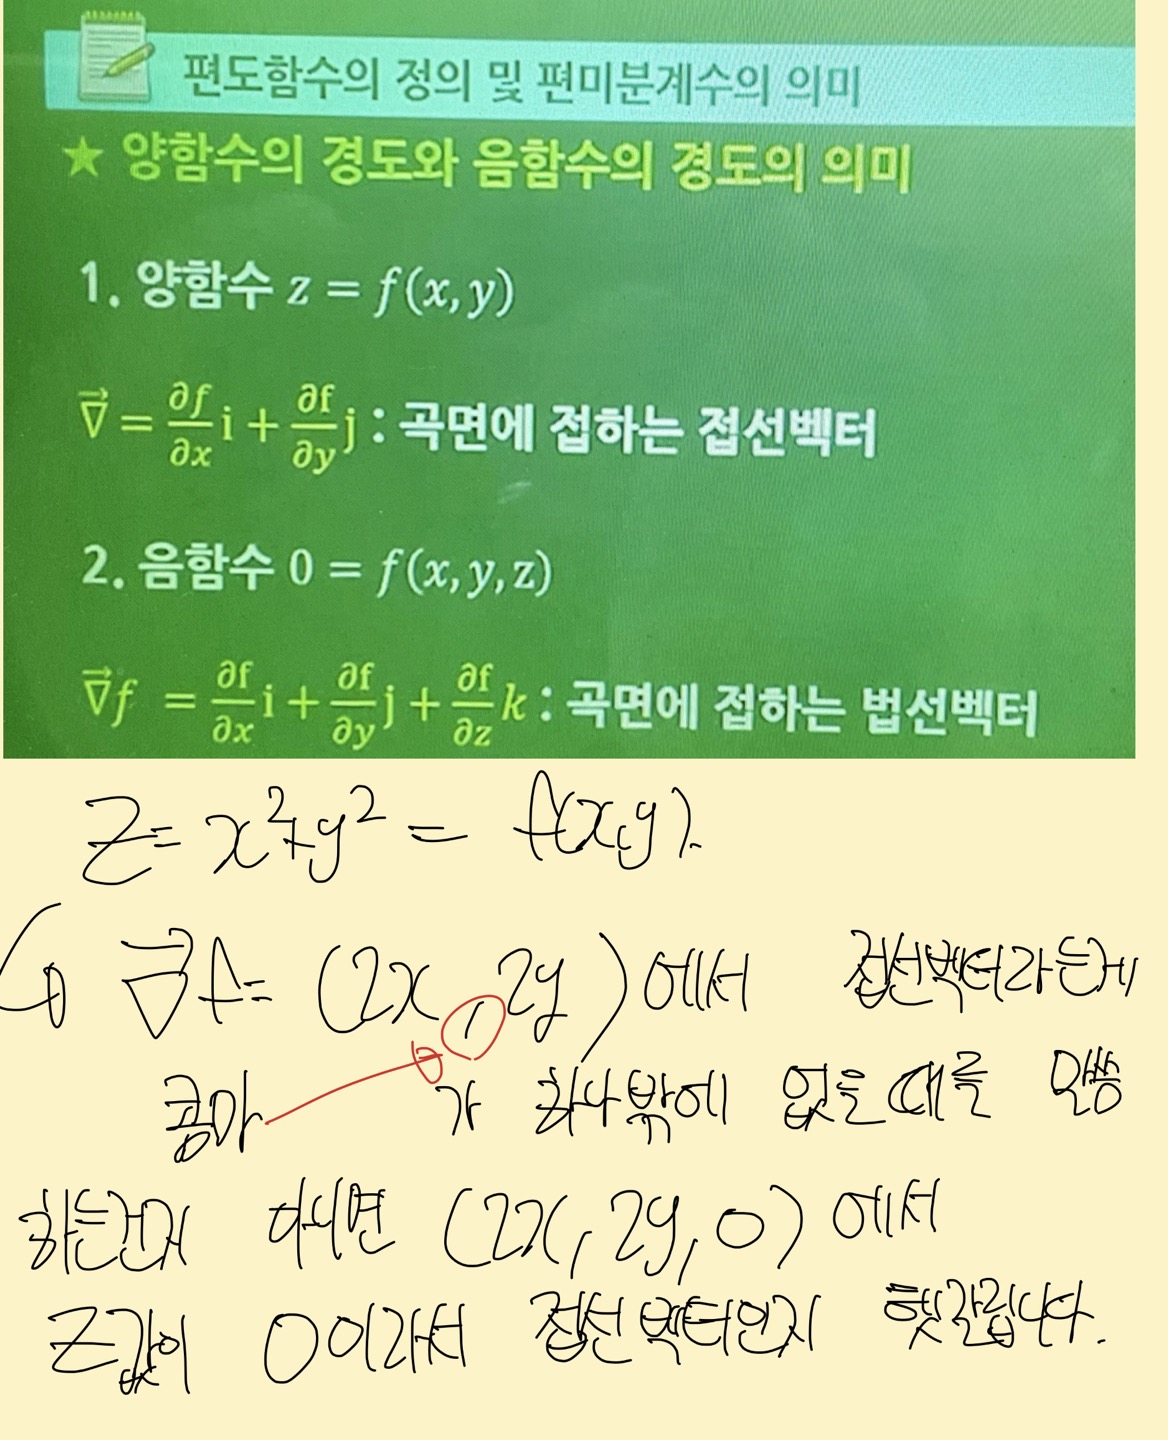 편도함수의 정의 및 편미분계수의 의미
★ 양함수의 경도와 음함수의 경도의 의미
1. 양함수 z = f(x, y)
∇⃗ = ∂f/∂x i + ∂f/∂y j : 곡면에 접하는 접선벡터
2. 음함수 0 = f(x, y, z)
∇⃗f = ∂f/∂x i + ∂f/∂y j + ∂f/∂z k : 곡면에 접하는 법선벡터
Z = x²+y² = f(x,y).
↳ ∇⃗f = (2x, 2y)에서 접선벡터라는게
콤마가 하나밖에 없을때를 말씀
하는건지 아니면 (2x, 2y, 0)에서
Z값이 0이라서 접선벡터인지 햇갈립니다.